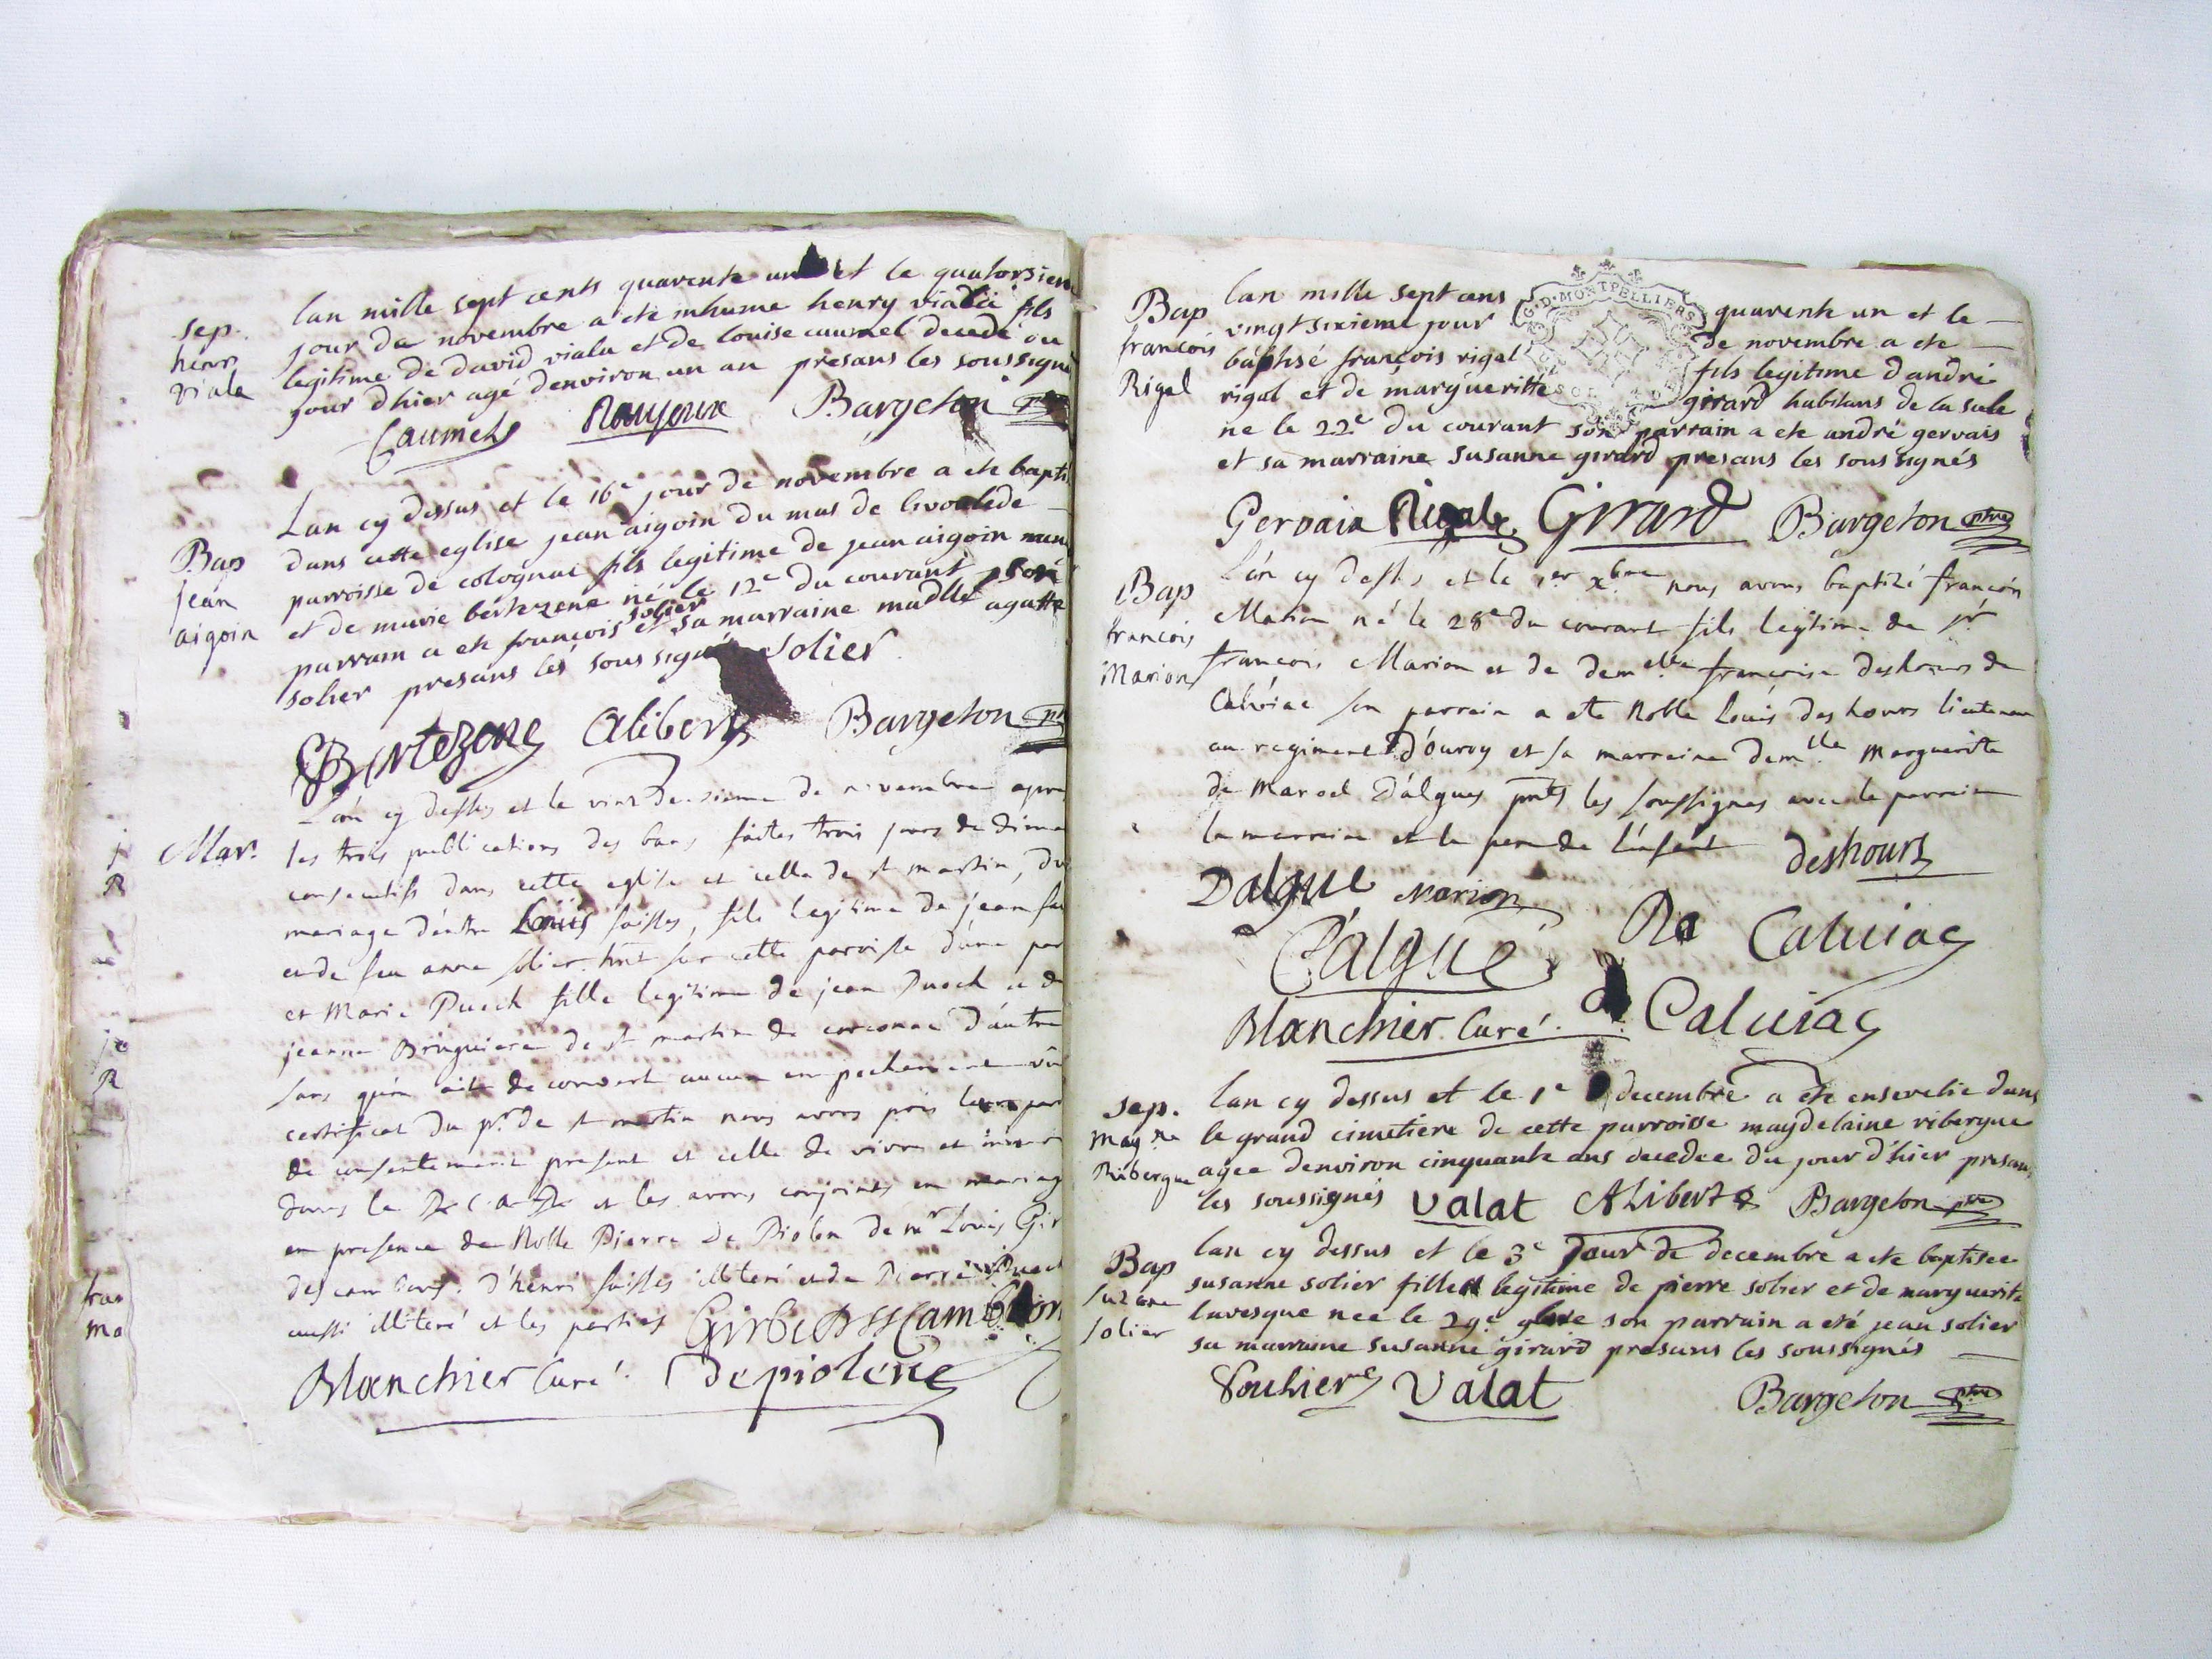 sep.
henri
viale
lan mille sept cents quarente un et le quatorsiem
jour de novembre a ete inhume henry viala fils
legitime de david viala et de louise caumel decedé du
jour d'hier agé denviron un an presans les soussigné
Caumels Noujoux Bargeton ptre
Bap
jean
aigoin
Lan cy dessus et le 16e jour de novembre a ete bapti
dans cette eglise jean aigoin du mas de
parroisse de colognac fils legitime de jean aigoin
et de marie bertezene né le 12e du courant son
parrain a ete francois solier et sa marraine madlle agatte
solier presans les soussignés Solier
Bertezene Alibert Bargeton
Mar.
L'an cy dessus et le vint deusieme de novembre apre
les trois publications des bans faites trois jours de dima
consecutifs dans cette eglise et cella de st martin, du
mariage d'entre Louis faisses, fils legitime de jean fai
et de feu anne solier tout sur cette paroisse d'une par
et Marie Puech fille legitime de jean Puech et de
jeanne Bruguiere de st martin de corconac d'autre
sans qu'on aite decouvert aucun empechement vû
certificat du pr. de st martin nous avons pris leur par
de consentement present et cella de vivre et mourir
dans la R C A R et les avons conjoints en mariag
en presence de Noble Pierre De Piolen de mr Louis Gir
des cambous. d'henri faisses illiteré et de Pierre Puech
aussi illiteré et les parties Girbe des Cambous
Blanchier Curé. Depiolene
Bap
francois
Rigal
lan mille sept cens quarente un et le
vingt sixieme jour de novembre a ete
baptisé françois rigal fils legitime d'andré
rigal et de margueritte girard habitans de la sale
ne le 22e du courant son parrain a ete andré gervais
et sa marraine susanne girard presans les soussignés
G. D. MONTPELLIER
Gervais Rigal Girard Bargeton ptre
Bap
francois
Marion
L'an cy dessus et le 1er xbre nous avons baptizé francois
Marion né le 28e du courant fils legitime de sr
francois Marion et de demelle francoise deshours de
Calviac son parrain a ete Noble Louis deshours lieutenan
au regiment d'ouroy et sa marraine demlle Marguerite
de Marcel d'algues pnts les soussignes avec le parrain
la marraine et le pere de l'enfent deshours
Dalgue Marion
D'algue De Calviac
Blanchier Curé. de Calviac
sep.
magne
Ribergue
lan cy dessus et le 1e decembre a ete ensevelie dans
le grand cimetiere de cette parroisse maydelaine ribergue
agee denviron cinquante ans decedee du jour d'hier presans
les soussignés Valat Alibert Bargeton ptre
Bap
suzane
solier
lan cy dessus et le 3e jour de decembre a ete baptisee
susanne solier fille legitime de pierre solier et de marguerite
lavesque nee le 29e 9bre son parrain a eté jean solier
sa marraine susanne girard presans les soussignés
Soulier Valat Bargeton ptre